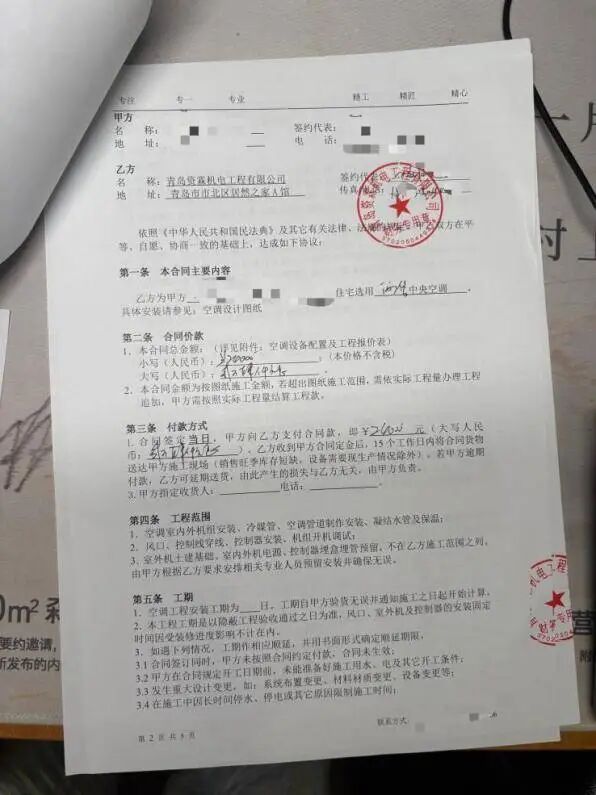 专注 专一 专业 精工 精匠 精心
甲方
名 称： 签约代表：
地 址： 电 话：
乙方
名 称：青岛赟霖机电工程有限公司 签约代表：
地 址：青岛市市北区居然之家A馆 传真
依照《中华人民共和国民法典》及其它有关法律、法规的规定，甲乙双方在平
等、自愿、协商一致的基础上，达成如下协议：
第一条 本合同主要内容
乙方为甲方 住宅选用 中央空调
具体安装请参见：空调设计图纸
第二条 合同价款
1、本合同总金额：（详见附件：空调设备配置及工程报价表）
小写（人民币）： （本价格不含税）
大写（人民币）：
2、本合同金额为按图纸施工金额，若超出图纸施工范围，需依实际工程量办理工程
追加，甲方需按照实际工程量结算工程款。
第三条 付款方式
1.合同签定当日，甲方向乙方支付合同款，即 元（大写人民
币： ），乙方收到甲方合同定金后，15个工作日内将合同货物
送达甲方施工现场（销售旺季库存短缺，设备需要现生产情况除外）。若甲方逾期
付款，乙方可延期送货，由此产生的损失与乙方无关，由甲方负责。
3.甲方指定收货人： 电话：
第四条 工程范围
1、空调室内外机组安装、冷媒管、空调管道制作安装、凝结水管及保温；
2、风口、控制线穿线、控制器安装、机组开机调试；
3、室外机土建基础、室内外机电源、控制器埋盒埋管预留，不在乙方施工范围之列，
由甲方根据乙方要求安排相关专业人员预留安装并确保无误。
第五条 工期
1、空调工程安装工期为 日，工期自甲方验货无误并通知施工之日起开始计算，
2、本工程工期是以隐蔽工程验收通过之日为准，风口、室外机及控制器的安装固定
时间因受装修进度影响不计在内。
3、如遇下列情况，工期作相应顺延，并用书面形式确定顺延期限，
3.1 合同签订同时，甲方未按照合同约定付款，合同未生效；
3.2 甲方在合同规定开工日期前，未能准备好施工用水、电及其它开工条件；
3.3 发生重大设计变更，如：系统布置变更、材料材质变更、设备变更等；
3.4 在施工中因长时间停水、停电或其它原因限制施工时间；
联系方式：
第 2 页 共 5 页